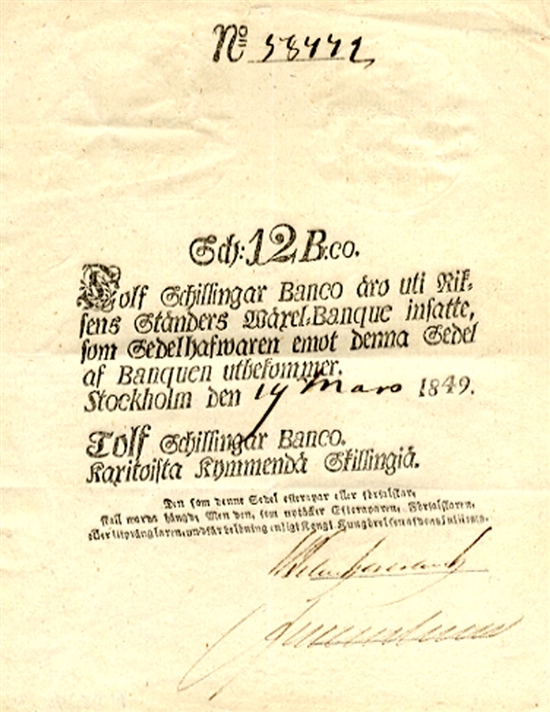 No 58442
Sch: 12 B:co.
Tolf Schillingar Banco äro uti Rik-
sens Ständers Wäxel-Banque insatte,
som Sedelhafwaren emot denna Sedel
af Banquen utbekommer.
Stockholm den Mars 1849.
Tolf Schillingar Banco.
Kaxitoista Kymmendä Skillingiä.
Den som denne Sedel efterapar eller förfalskar,
skall warda hängd; Men den, som uptäcker Efteraparen, Förfalskaren,
eller utprånglaren, undfår belöning enligt Kongl. Kungörelsen af den